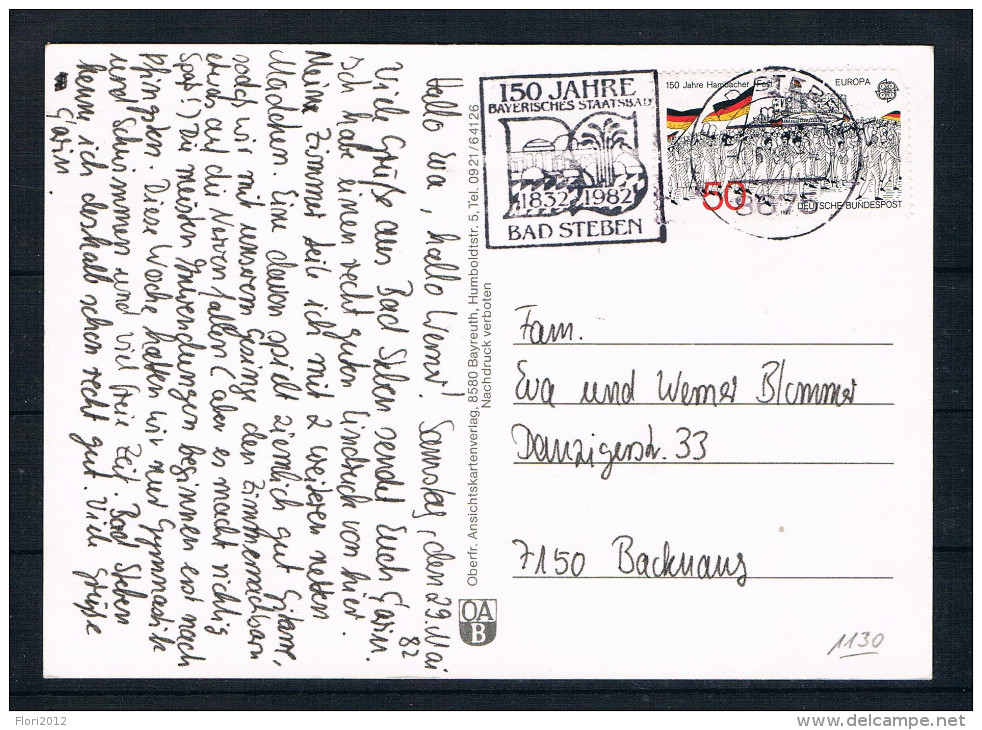 Samstag, den 29. Mai
82
Hallo Eva, hallo Werner!
Viele Grüße aus Bad Steben sendet Euch Carin.
Ich habe einen recht guten Eindruck von hier.
Meine Zimmer teile ich mit 2 weiteren netten
Mädchen. Eine davon spielt ziemlich gut Gitarre,
sodaß wir mit unserem Gesinge den Zimmernachbarn
etwas auf die Nerven fallen (aber es macht richtig
Spaß!) Die meisten Anwendungen beginnen erst nach
Pfingsten. Diese Woche hatten wir nur Gymnastik
und Schwimmen und viel freie Zeit. Bad Steben
kenn' ich deshalb schon recht gut. Viele Grüße
Carin.
Oberfr. Ansichtskartenverlag, 8580 Bayreuth, Humboldtstr. 5, Tel. 0921/64126
Nachdruck verboten
OA
B
150 JAHRE
BAYERISCHES STAATSBAD
1832 1982
BAD STEBEN
150 Jahre Hambacher Fest
EUROPA
50
DEUTSCHE BUNDESPOST
Fam.
Eva und Werner Blummer
Danzigerstr. 33
7150 Backnang
1130
Flori2012
www.delcampe.net